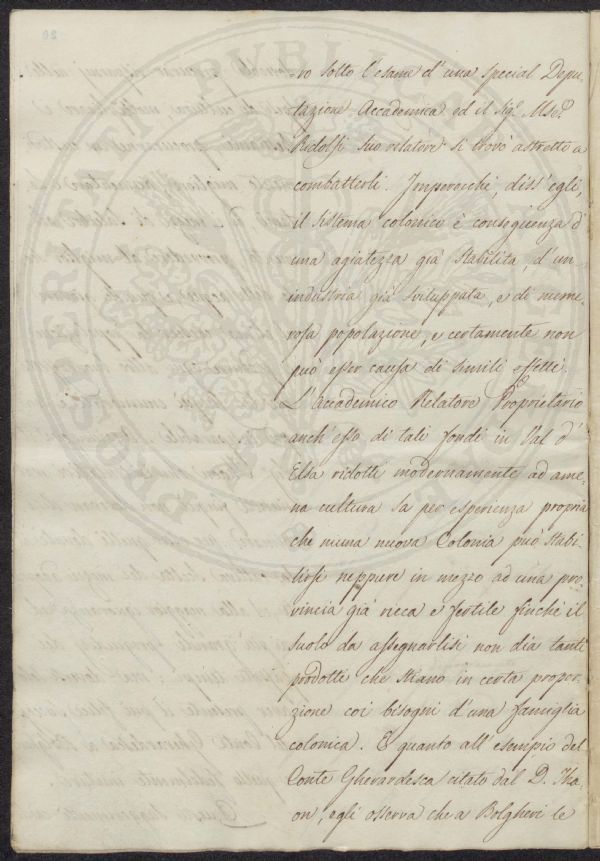 ro sotto l'esame d'una special Depu-
tazione Accademica ed il Sigr. Mse.
Ridolfi suo relatore si trovò astretto a
combatterli. Imperocchè, diss'egli,
il sistema colonico è conseguenza d'
una agiatezza già stabilita, d'un'
industria già sviluppata, e di nume-
rosa popolazione, e certamente non
può esser causa di simili effetti.
L'Accademico Relatore Proprietario
anch'esso di tali fondi in Val d'
Elsa ridotti modernamente ad ame-
na cultura sa per esperienza propria
che niuna nuova Colonia può stabi-
lirsi neppure in mezzo ad una pro-
vincia già ricca e fertile finchè il
suolo da assegnarlisi non dia tanti
prodotti che stiano in certa propor-
zione coi bisogni d'una famiglia
colonica. E quanto all'esempio del
Conte Gherardesca citato dal D. Tha-
on, egli osserva che a Bolgheri le